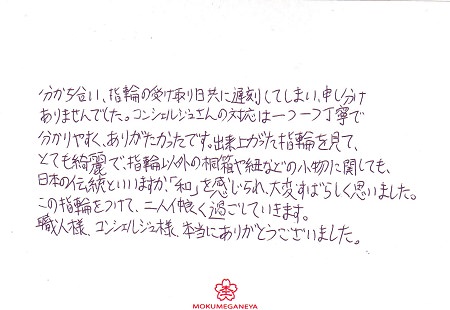 分かち合い、指輪の受け取り日共に遅刻してしまい、申し分け
ありませんでした。コンシェルジュさんの対応は一つ一つ丁寧で
分かりやすく、ありがたかったです。出来上がった指輪を見て、
とても綺麗で、指輪以外の桐箱や紐などの小物に関しても、
日本の伝統といいますか、「和」を感じられ、大変すばらしく思いました。
この指輪をつけて、二人仲良く過ごしていきます。
職人様、コンシェルジュ様、本当にありがとうございました。
MOKUMEGANEYA